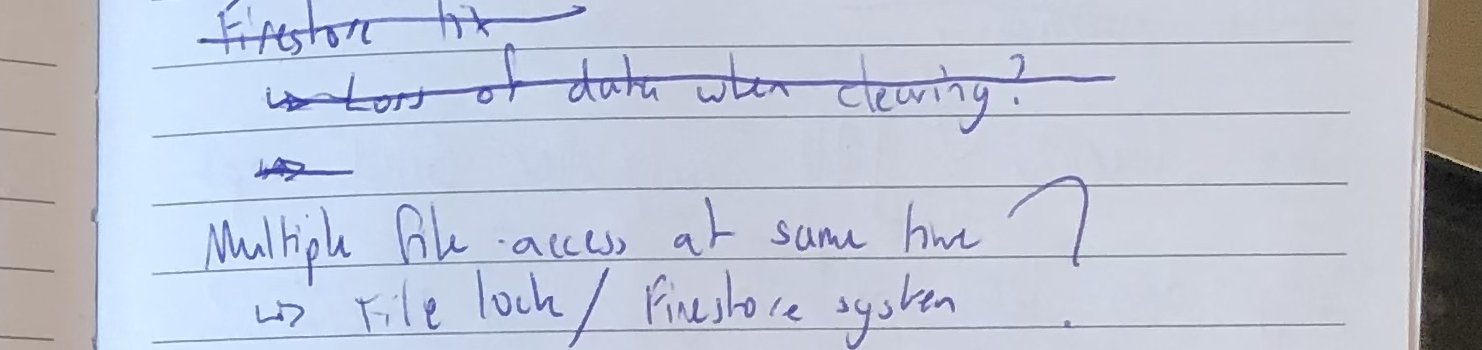 Firestore fix
↳ Loss of data when clearing?
↳
Multiple file access at same time ?
↳ File lock / Firestore system